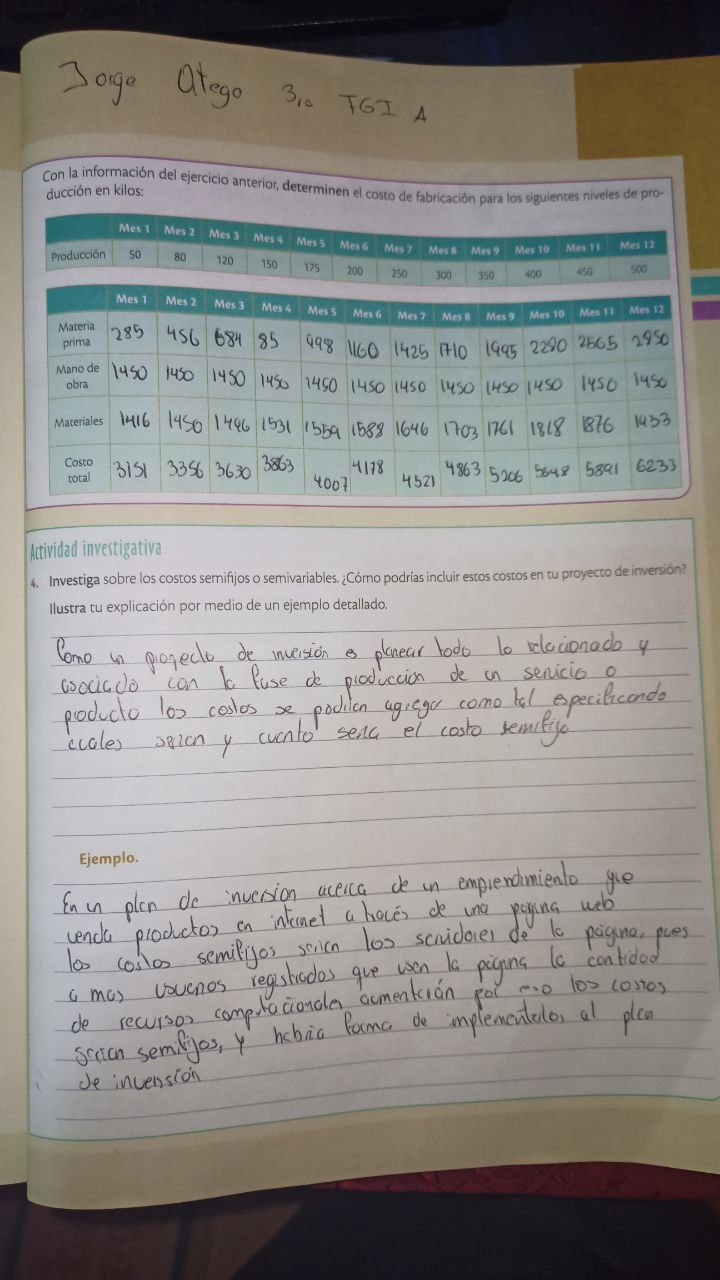 Jorge Otego 3,0 TGI A
Con la información del ejercicio anterior, determinen el costo de fabricación para los siguientes niveles de pro-
ducción en kilos:
Mes 1 Mes 2 Mes 3 Mes 4 Mes 5 Mes 6 Mes 7 Mes 8 Mes 9 Mes 10 Mes 11 Mes 12
Producción 50 80 120 150 175 200 250 300 350 400 450 500
Mes 1 Mes 2 Mes 3 Mes 4 Mes 5 Mes 6 Mes 7 Mes 8 Mes 9 Mes 10 Mes 11 Mes 12
Materia
prima 285 456 684 85 998 1160 1425 1710 1995 2290 2565 2950
Mano de
obra 1450 1450 1450 1450 1450 1450 1450 1450 1450 1450 1450 1450
Materiales 1416 1450 1496 1531 1559 1588 1646 1703 1761 1818 1876 1933
Costo
total 3151 3356 3630 3863 4007 4178 4521 4863 5206 5648 5891 6233
Actividad investigativa
4. Investiga sobre los costos semifijos o semivariables. ¿Cómo podrías incluir estos costos en tu proyecto de inversión?
Ilustra tu explicación por medio de un ejemplo detallado.
Como un proyecto de inversión es planear todo lo relacionado y
asociado con la fase de producción de un servicio o
producto los costos se podrian agregar como tal especificando
cuales serian y cuanto seria el costo semifijo
Ejemplo.
En un plan de inversion acerca de un emprendimiento que
venda productos en internet a través de una pagina web
los costos semifijos serian los servidores de la pagina, pues
a mas usuarios registrados que usen la página la cantidad
de recursos computacionales aumentarán por eso los costos
serian semifijos, y habria forma de implementarlos al plan
de inversión